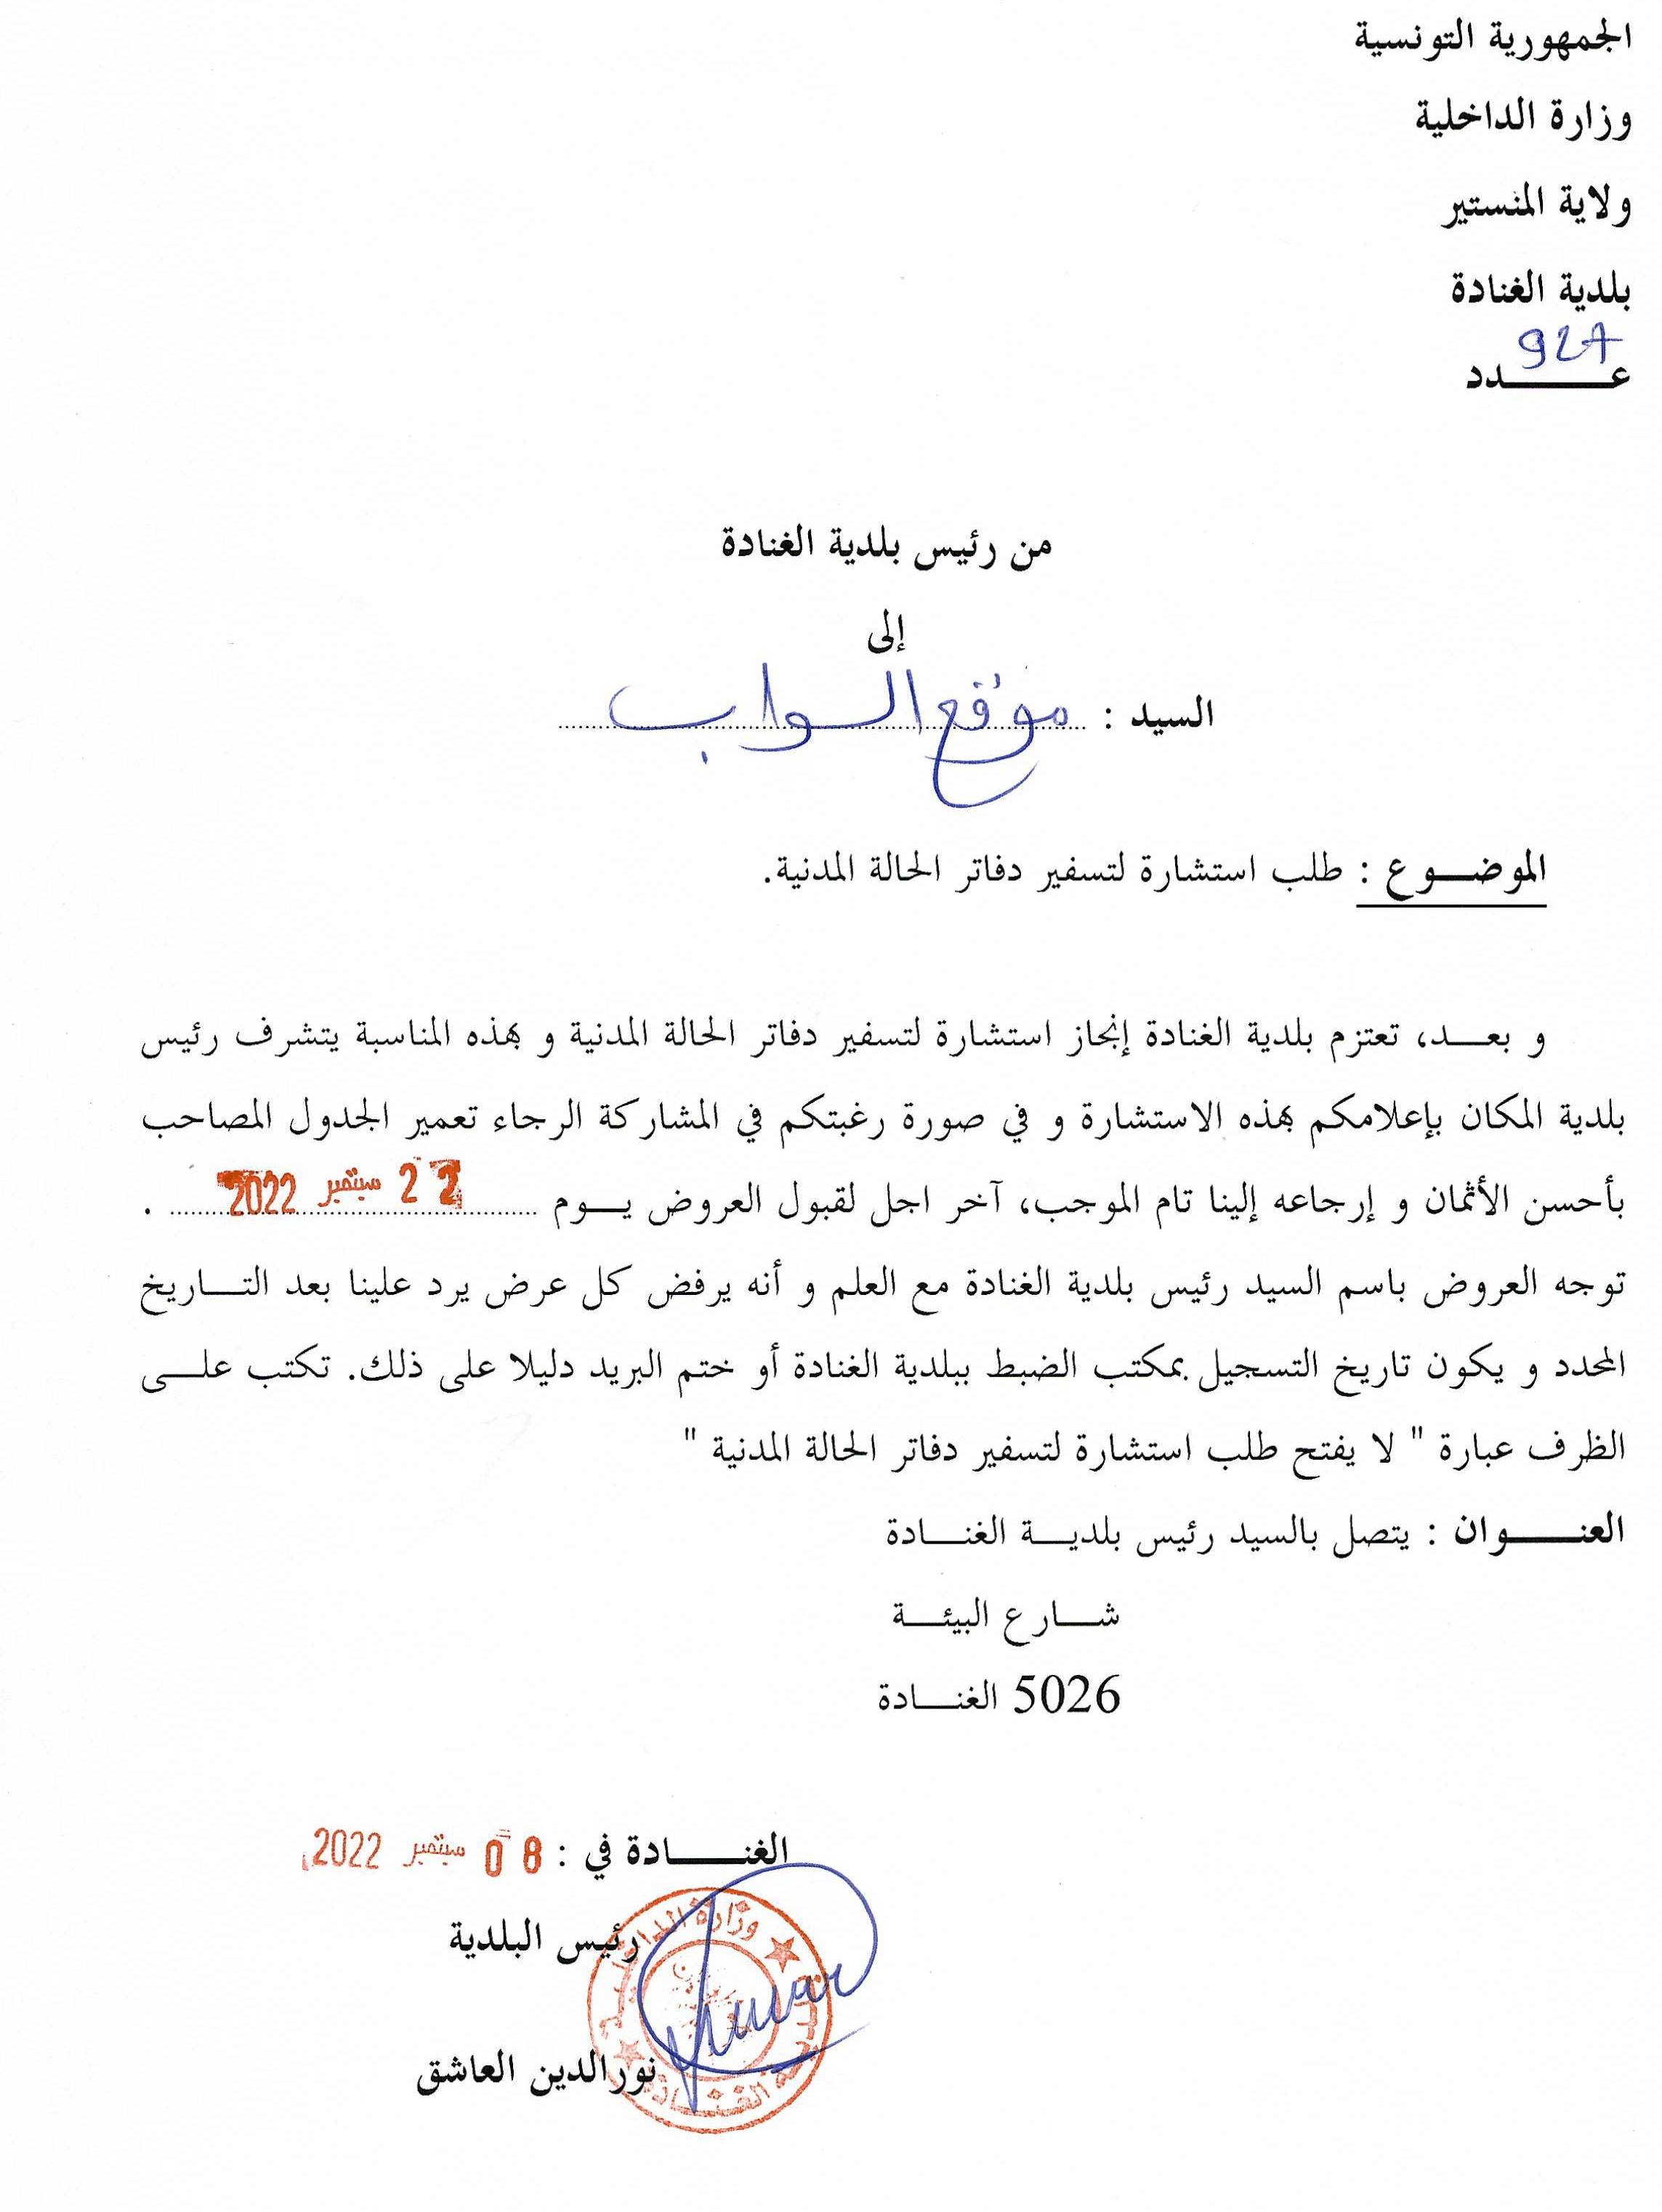 الجمهورية التونسية
وزارة الداخلية
ولاية المنستير
بلدية الغنادة
927
عـــــدد
من رئيس بلدية الغنادة
إلى
السيد : موقع الـواب
الموضـــوع : طلب استشارة لتسفير دفاتر الحالة المدنية.
و بعـــد، تعتزم بلدية الغنادة إنجاز استشارة لتسفير دفاتر الحالة المدنية و بهذه المناسبة يتشرف رئيس
بلدية المكان بإعلامكم بهذه الاستشارة و في صورة رغبتكم في المشاركة الرجاء تعمير الجدول المصاحب
بأحسن الأثمان و إرجاعه إلينا تام الموجب، آخر اجل لقبول العروض يـــوم 22 سبتمبر 2022 .
توجه العروض باسم السيد رئيس بلدية الغنادة مع العلم و أنه يرفض كل عرض يرد علينا بعد التـــاريخ
المحدد و يكون تاريخ التسجيل بمكتب الضبط ببلدية الغنادة أو ختم البريد دليلا على ذلك. تكتب علـــى
الظرف عبارة " لا يفتح طلب استشارة لتسفير دفاتر الحالة المدنية "
العنـــــوان : يتصل بالسيد رئيس بلديـــة الغنـــادة
شـــارع البيئـــة
5026 الغنـــادة
الغنـــــادة في : 08 سبتمبر 2022
رئيس البلدية
وزارة الداخلية
نورالدين العاشق
بلدية الغنـادة